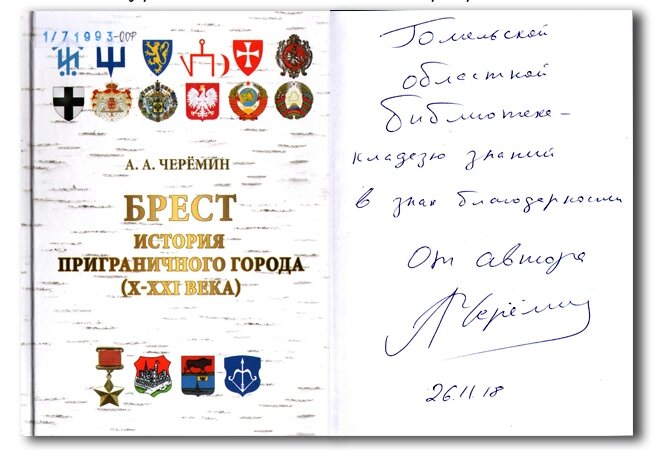 1/71993-00Ф
А. А. ЧЕРЁМИН
БРЕСТ
ИСТОРИЯ
ПРИГРАНИЧНОГО ГОРОДА
(X-XXI ВЕКА)
Гомельской
областной
библиотеке-
кладезю знаний
в знак благодарности
От автора
АЧерёмин
26.11.18